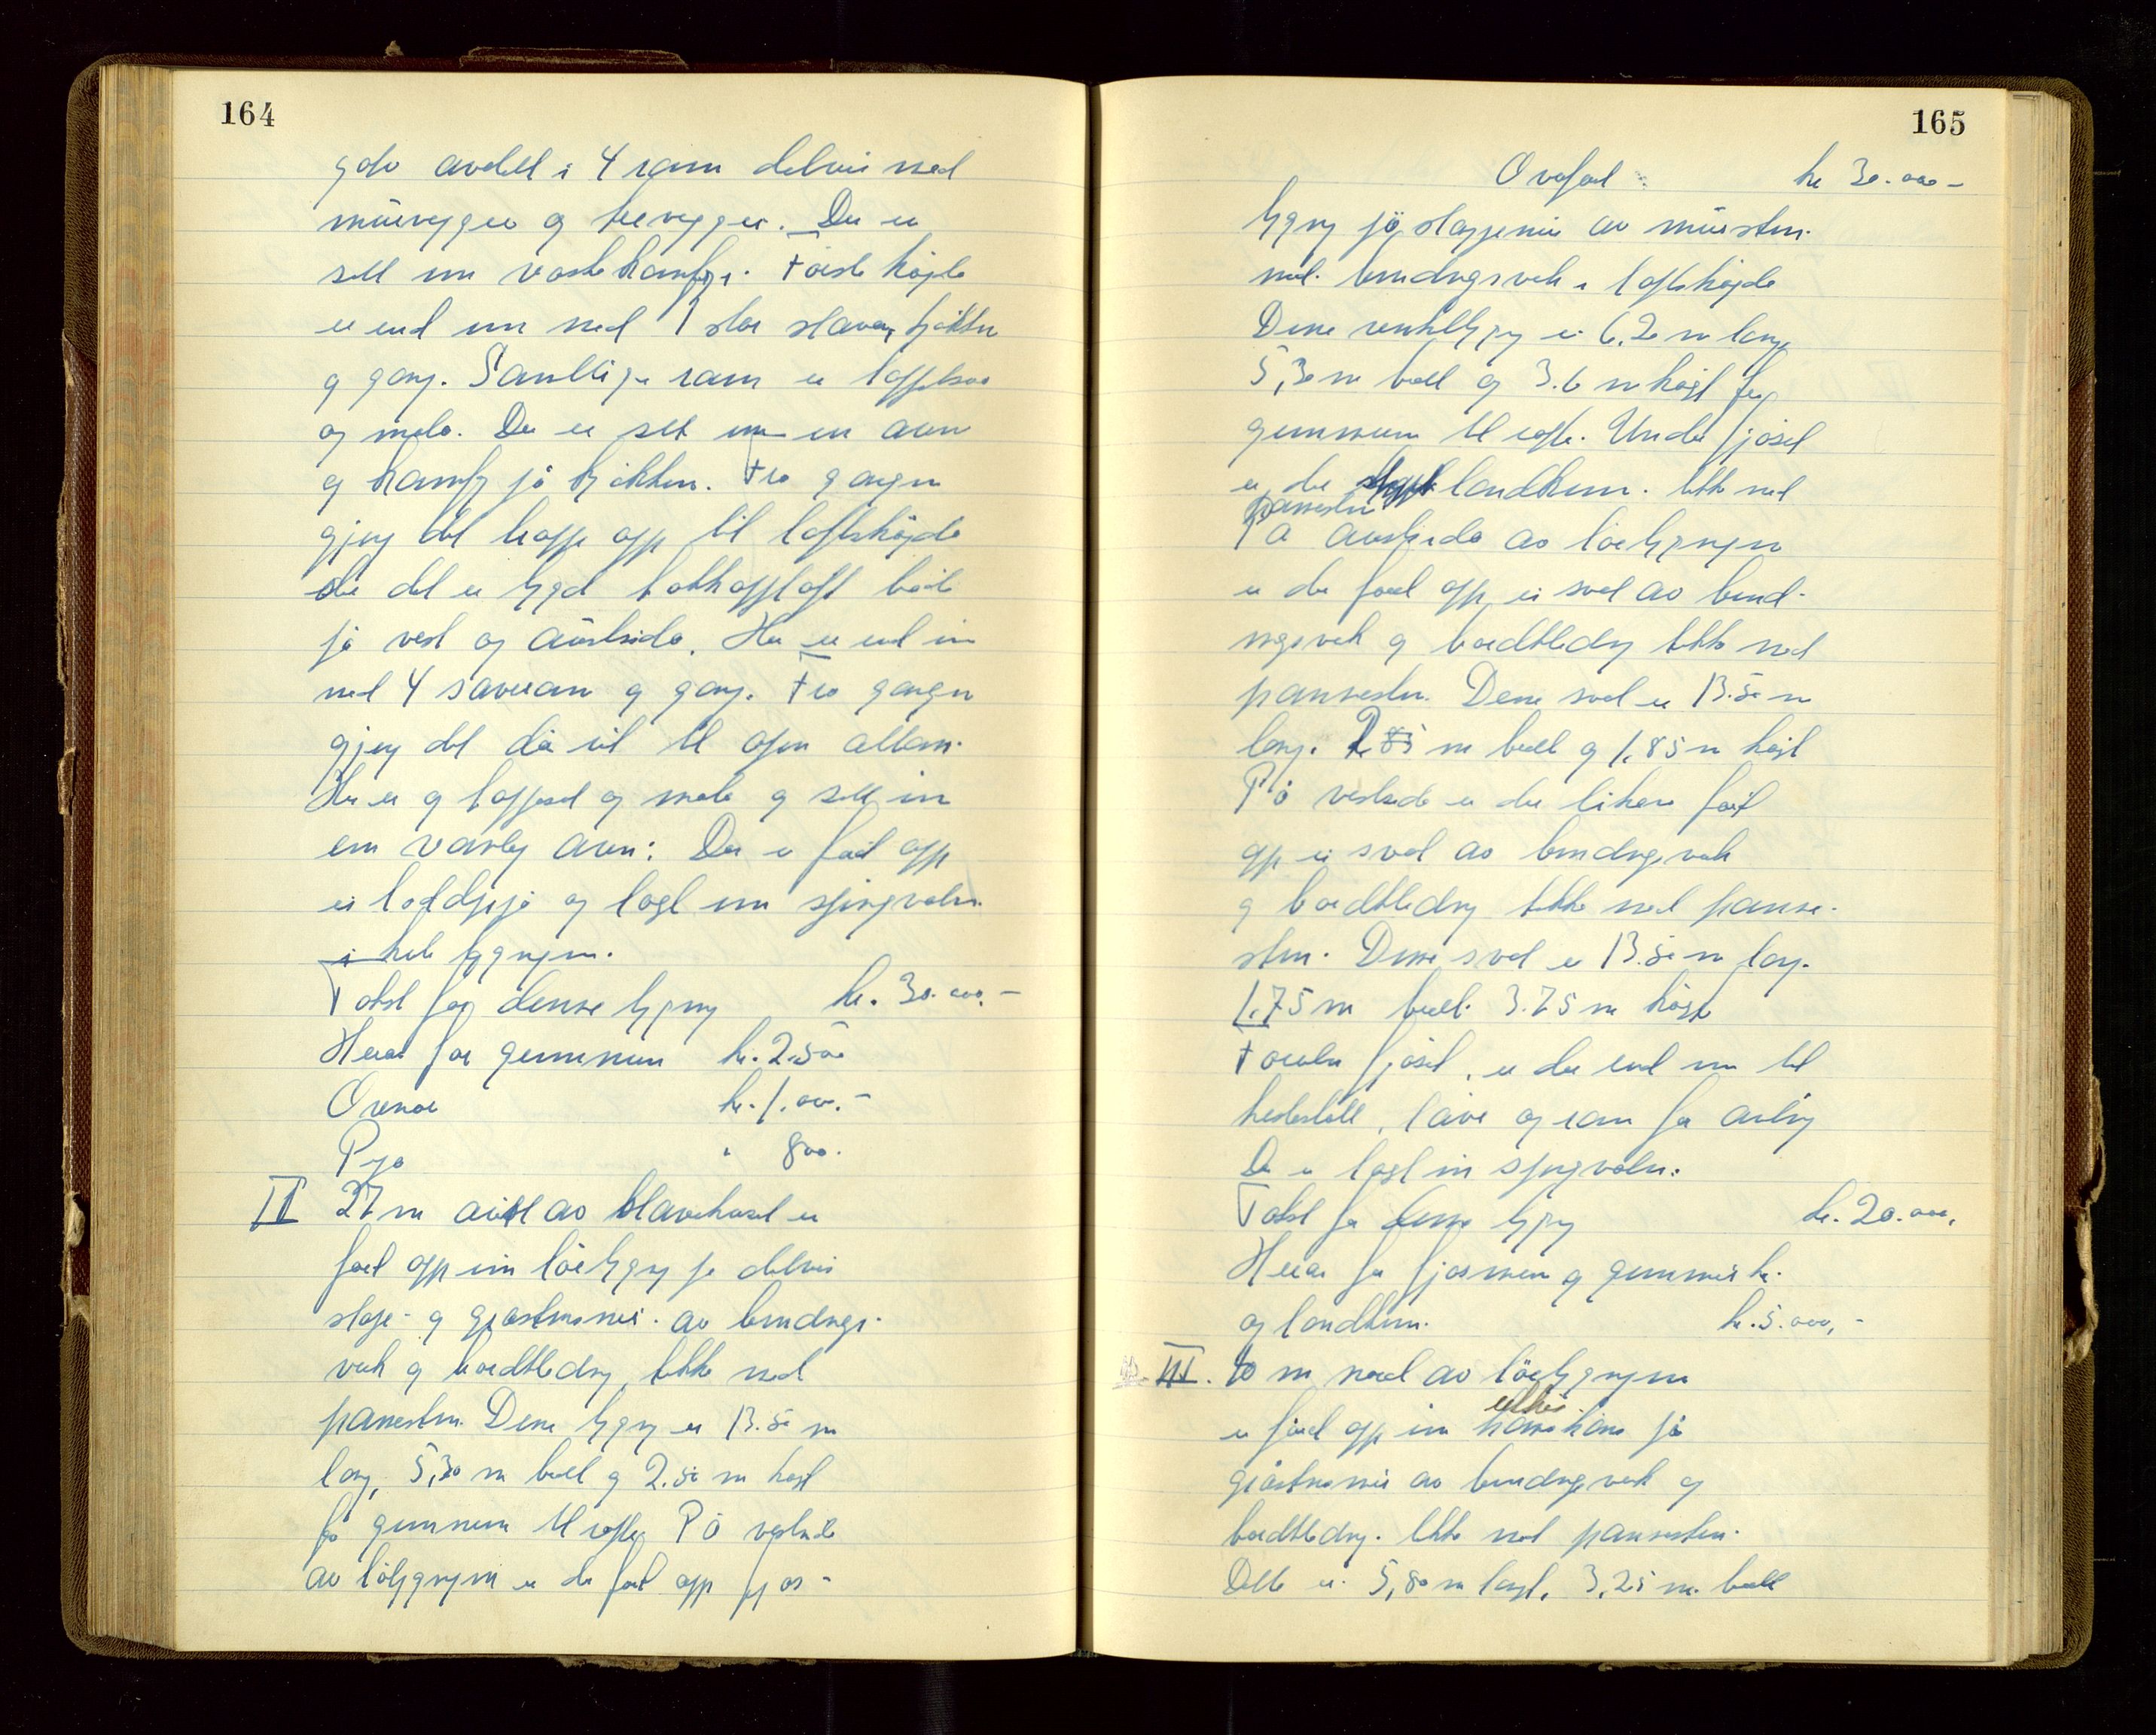 164
golv avdelt i 4 rom delvis med
murvegger og trevegger. Der er
sett inn vaskekamfyr. Første høgde
er innd inn med 1 stor stova, kjøkken
og gang. Samtlige rom er
og mala. Der er sett inn en omn
og kamfy på kjøkken. Fra gangen
gjeng det trapp opp til loftshøgda
der det er bygd takkopploft både
på vest og austsida. Her er innd inn
med 4 soverom og gang. Fra gangen
gjeng det då ut til open altan.
Her er og og mala og sett inn
ein vanleg omn. Der er ført opp
ei loddpipa og lagt inn springvatn
i heile bygningen.
Takst for denne bygning kr. 30.000.-
Herav for grunnmur kr. 2.500
Omnar kr. 1.000.-
Pipa " 800.
II 27 m aust av stovehuset er
ført opp ein løebygning på delvis
støpe- og gråsteinsmur av bindings-
verk og bordkledning, tekke med
pannestein. Denne bygning er 13.50 m
lang, 5,30 m breitt og 2.50 m høgt
frå grunnmur til raft. På vestsida
av løebygningen er der ført opp fjøs-
165
Overført kr 30.000-
bygning på støypemur av murstein
med bindingsverk i loftshøgda
Denne vinkelbygning er 6,20 m lang
5,30 m breitt og 3.6 m høgt frå
grunnmur til raft. Under fjøset
er der landkum. tekke med
pannestein
På austsida av løebygningen
er der ført opp ei sval av bind-
ingsverk og bordkledning tekke med
pannestein. Denne sval er 13.50 m
lang. 2.85 m breitt og 1,85 m høgt
På vestsida er der likeins ført
opp ei sval av bindingsverk
og bordkledning tekke med panne-
stein. Denne sval er 13.50 m lang.
1.75 m breitt. 3.75 m høgt
Foruten fjøset, er der innd inn til
hestestall, låve og rom for avling
Der er lagt inn springvatn.
Takst for denne bygning kr. 20.000,
Herav for fjøsmur og grunnmur kr.
og landkum. kr. 5.000,-
III. 10 m nord av løebygningen
er ført opp ein hønsehus på
gråsteinsmur av bindingsverk og
bordkledning. tekke med pannestein.
Dette er 5,80 m langt, 3,25 m breitt